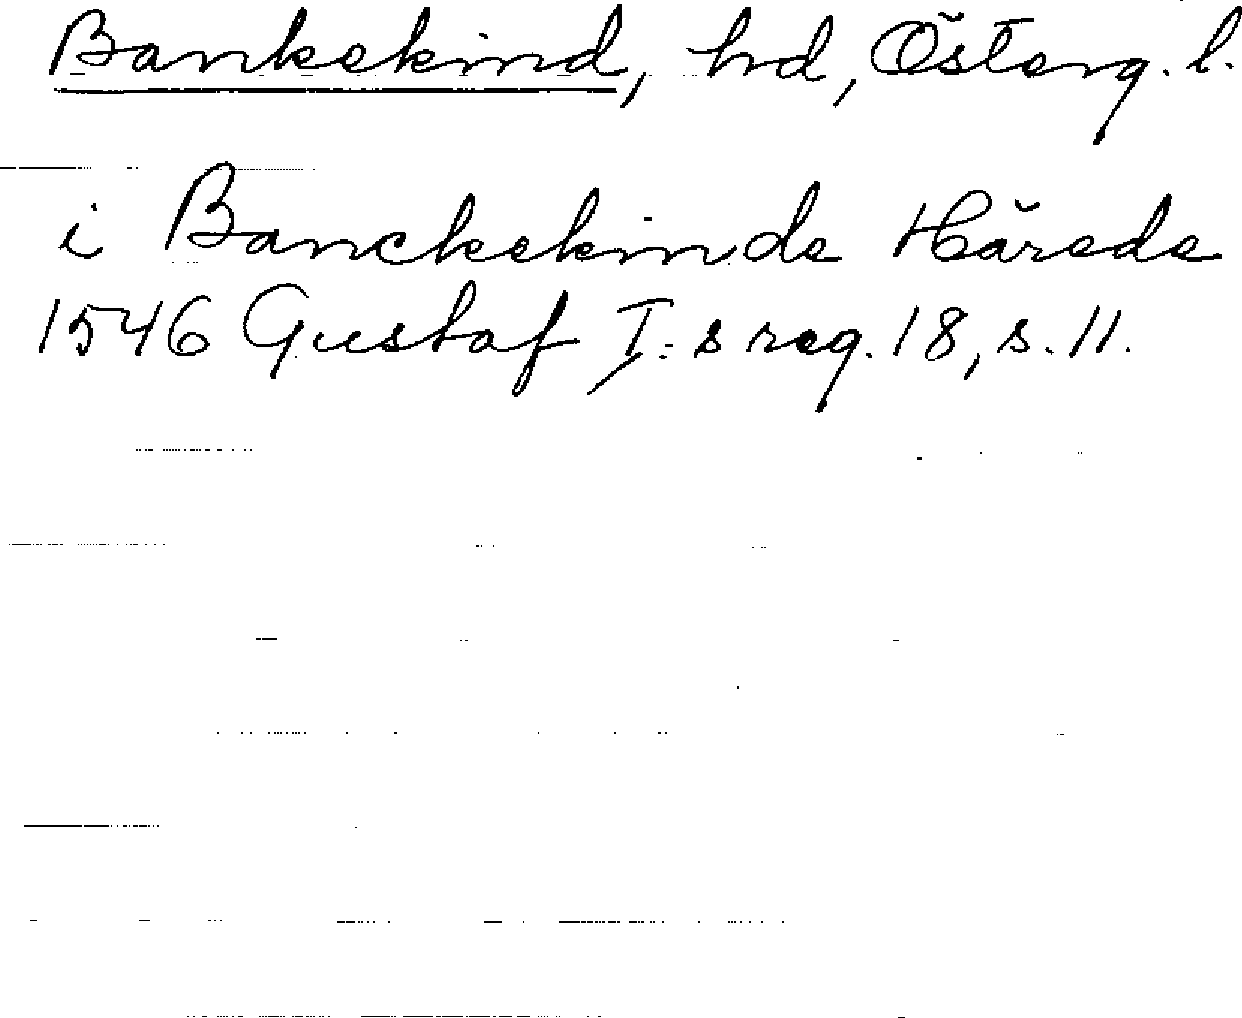 Bankekind, hd, Österg. l.
i Banckekinde Härede
1546 Gustaf I:s reg. 18, s. 11.